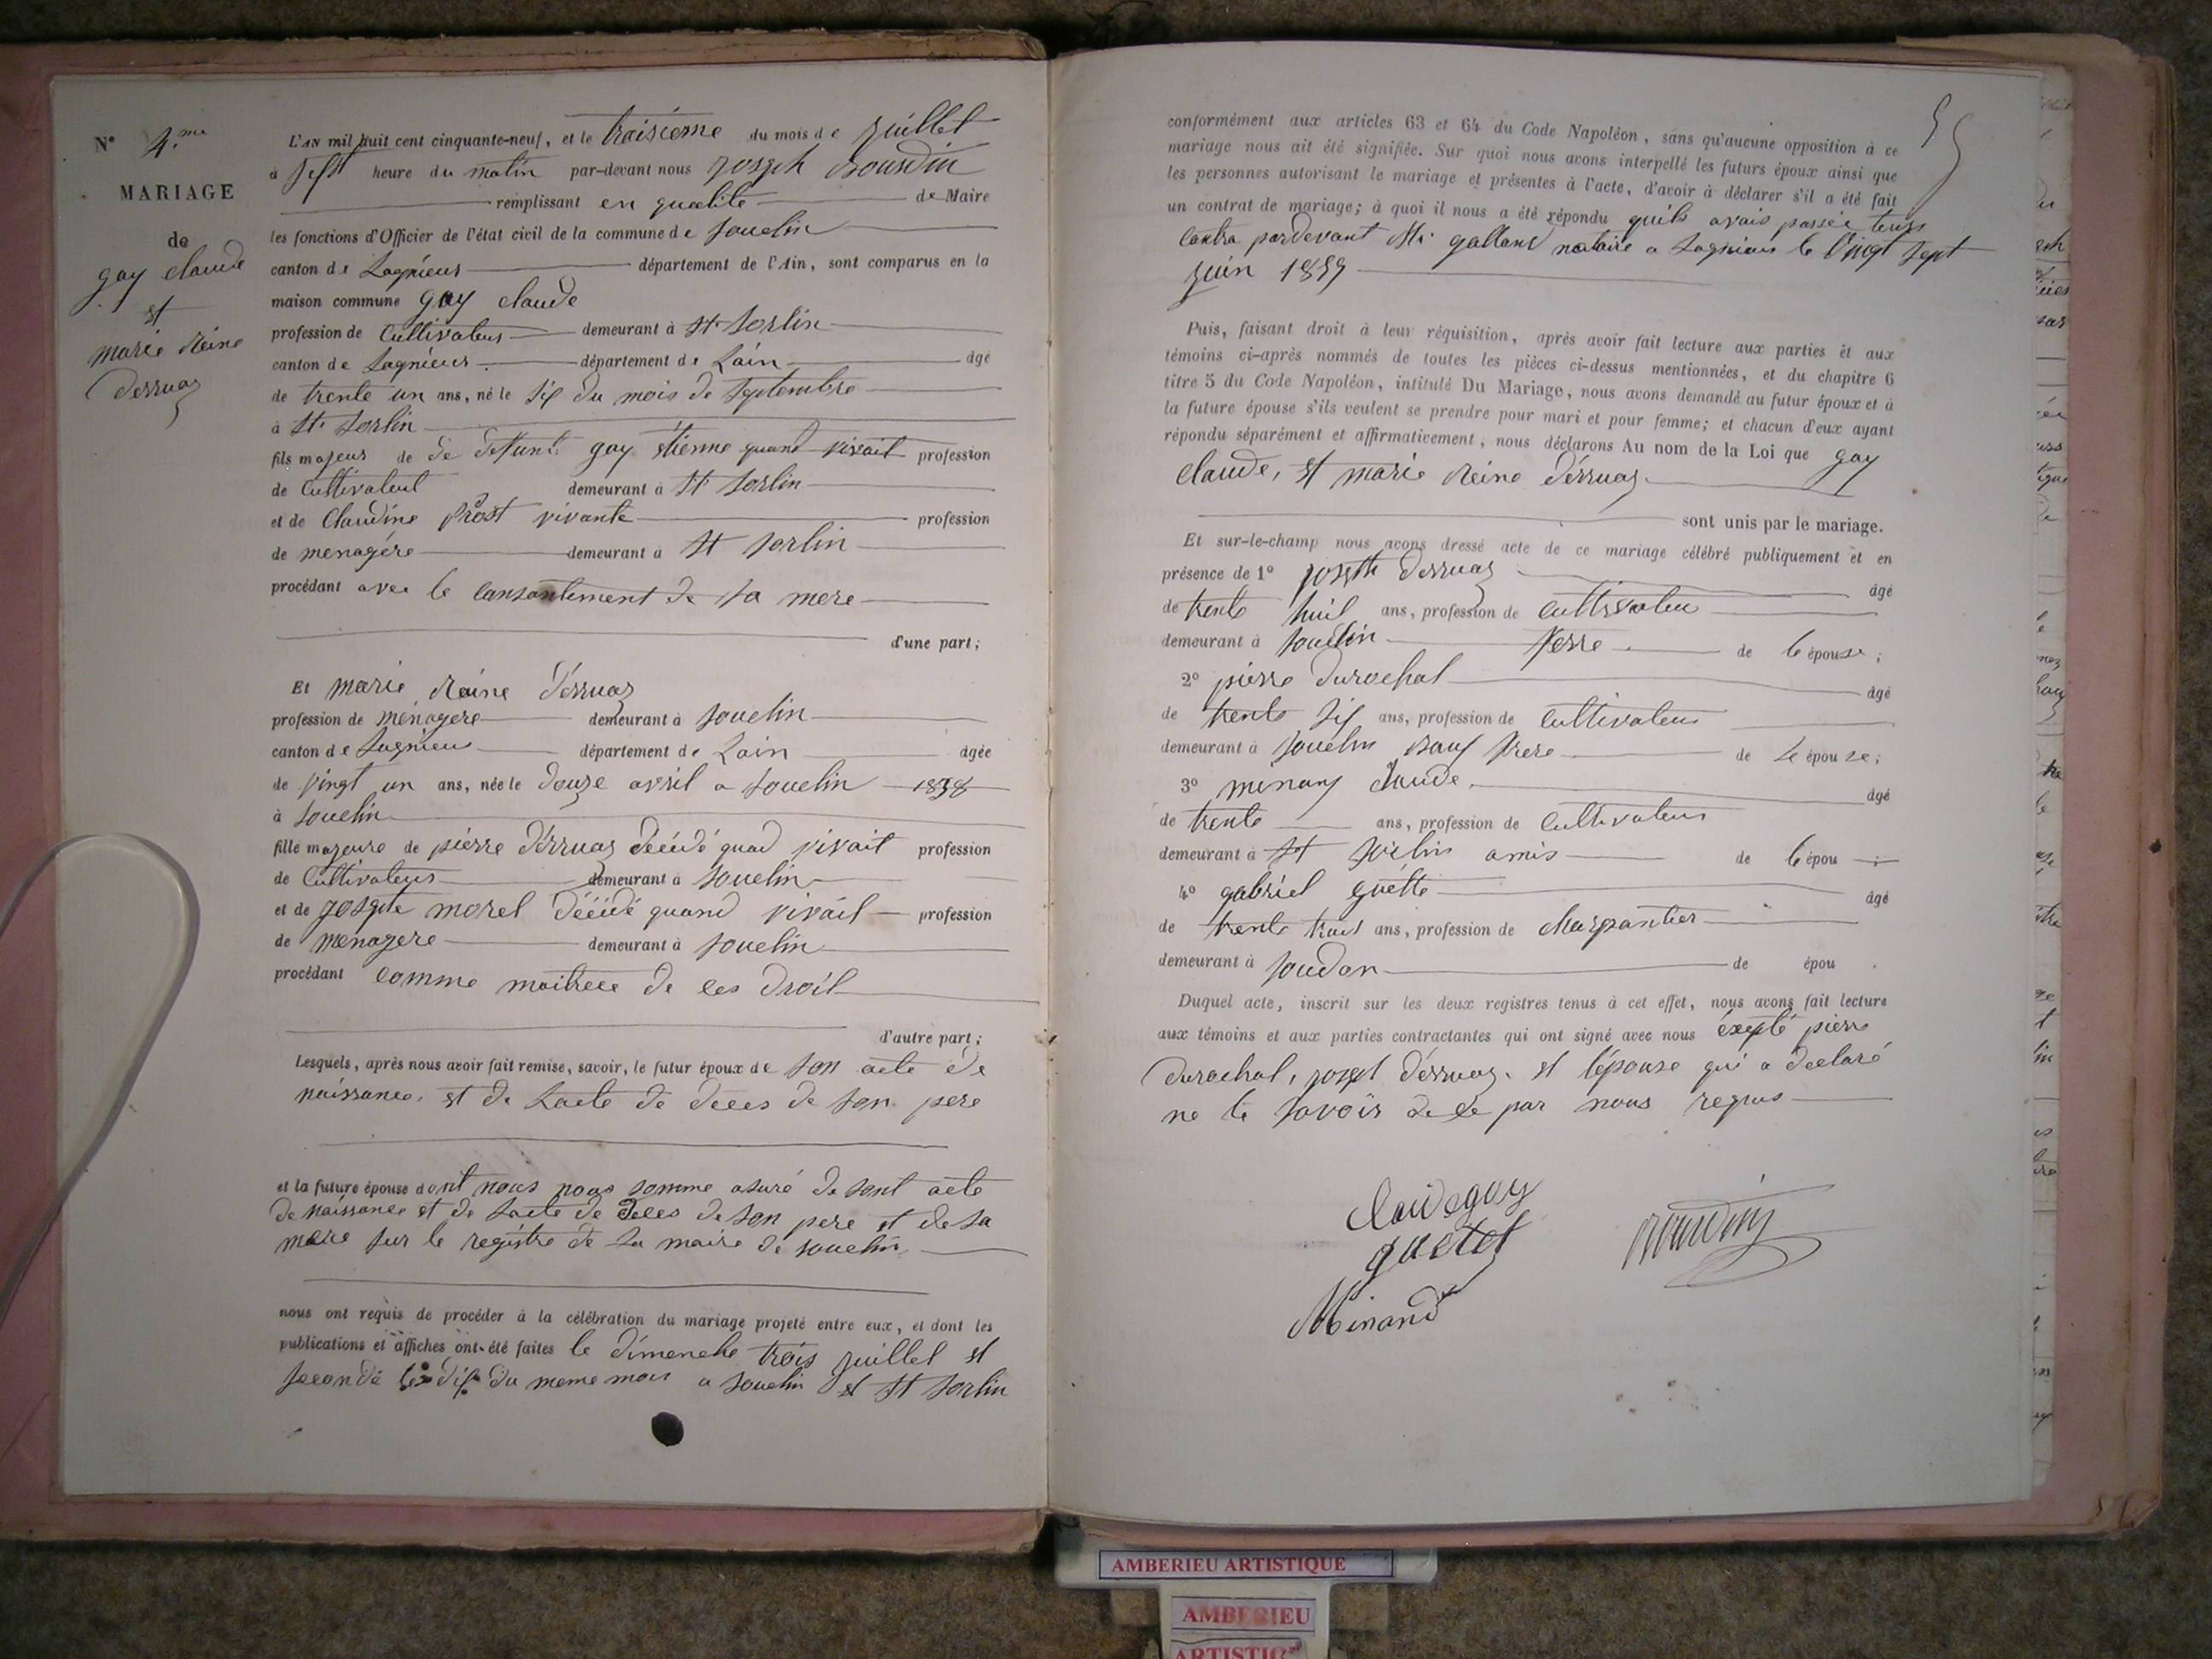 N° 4.me
MARIAGE
de
gay claude
et
marie Reine
Derruaz
L'AN mil huit cent cinquante-neuf, et le troisieme du mois de juillet
à sept heure du matin par-devant nous joseph Bourdin
remplissant en qualité de Maire
les fonctions d'Officier de l'état civil de la commune de souclin
canton de Lagnieux département de l'Ain, sont comparus en la
maison commune gay claude
profession de Cultivateur demeurant à St Sorlin
canton de Lagnieux département de Lain âgé
de trente un ans, né le six du mois de Septembre
à St Sorlin
fils majeur de de défunt gay étienne quand vivait profession
de Cultivateut demeurant à St Sorlin
et de Claudine Prost vivante profession
de menagére demeurant à St Sorlin
procédant avec le consantement de sa mere
d'une part;
Et marie Reine Dérruaz
profession de ménagere demeurant à souclin
canton de Lagnieux département de Lain âgée
de vingt un ans, née le douze avril a souclin 1838
à souclin
fille majeure de piérre Dérruaz décédé quad vivait profession
de Cultivateur demeurant à souclin
et de josepte morel décédé quand vivait profession
de menagere demeurant à souclin
procédant comme maitrece de ces droit
d'autre part;
Lesquels, après nous avoir fait remise, savoir, le futur époux de son acte de
naissance, et de Lacte de déces de son pere
et la future épouse dont nous nous somme asuré de sont acte
de naissance et de Lacte de déces de son pere et de sa
mere sur le registre de La maire de souclin
nous ont requis de procéder à la célébration du mariage projeté entre eux, et dont les
publications et affiches ont été faites le dimenche trois juillet et
seconde les dix du meme mois a souclin et St Sorlin
conformément aux articles 63 et 64 du Code Napoléon, sans qu'aucune opposition à ce
mariage nous ait été signifiée. Sur quoi nous avons interpellé les futurs époux ainsi que
les personnes autorisant le mariage et présentes à l'acte, d'avoir à déclarer s'il a été fait
un contrat de mariage; à quoi il nous a été répondu quils avais passée leurs
Contra pardevant Mr galland notaire a Lagnieux le Vingt sept
juin 1859
Puis, faisant droit à leur réquisition, après avoir fait lecture aux parties et aux
témoins ci-après nommés de toutes les pièces ci-dessus mentionnées, et du chapitre 6
titre 5 du Code Napoléon, intitulé Du Mariage, nous avons demandé au futur époux et à
la future épouse s'ils veulent se prendre pour mari et pour femme; et chacun d'eux ayant
répondu séparément et affirmativement, nous déclarons Au nom de la Loi que gay
claude, et marie Reine Dérruaz
sont unis par le mariage.
Et sur-le-champ nous avons dressé acte de ce mariage célébré publiquement et en
présence de 1° joseph Derruaz âgé
de trente huit ans, profession de cultivateu
demeurant à souclin frere de lépouse;
2° pierre Durochat âgé
de trente six ans, profession de Cultivateur
demeurant à souclin Bauf frere de Lépouse;
3° minang claude âgé
de trente ans, profession de Cultivateur
demeurant à St amis de lépou
4° gabriel guétte âgé
de trente trois ans, profession de Charpantier
demeurant à soudon de épou
Duquel acte, inscrit sur les deux registres tenus à cet effet, nous avons fait lecture
aux témoins et aux parties contractantes qui ont signé avec nous éxepté pierre
Durochat, josept Dérruaz. et lépouse qui a declaré
ne le savoir de ce par nous requis
Claudegay
guetet
Minand
Bourdin
AMBERIEU ARTISTIQUE
AMBERIEU
ARTISTIQ